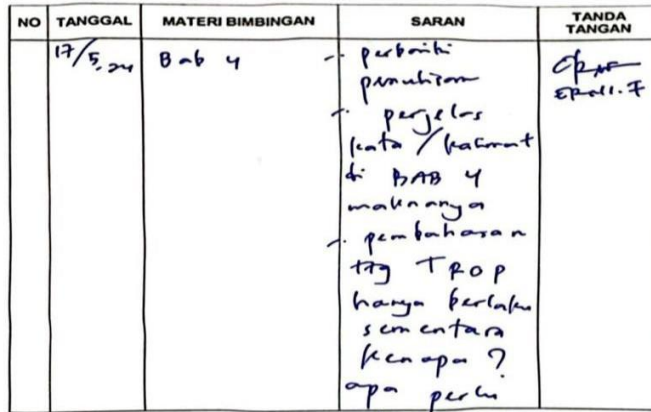 NO TANGGAL MATERI BIMBINGAN SARAN TANDA TANGAN
17/5.24 Bab 4 - perbaiki
penulisan
- perjelas
kata / kalimat
di BAB 4
maknanya
- pembahasan
ttg TROP
hanya berlaku
sementara
kenapa ?
apa perlu